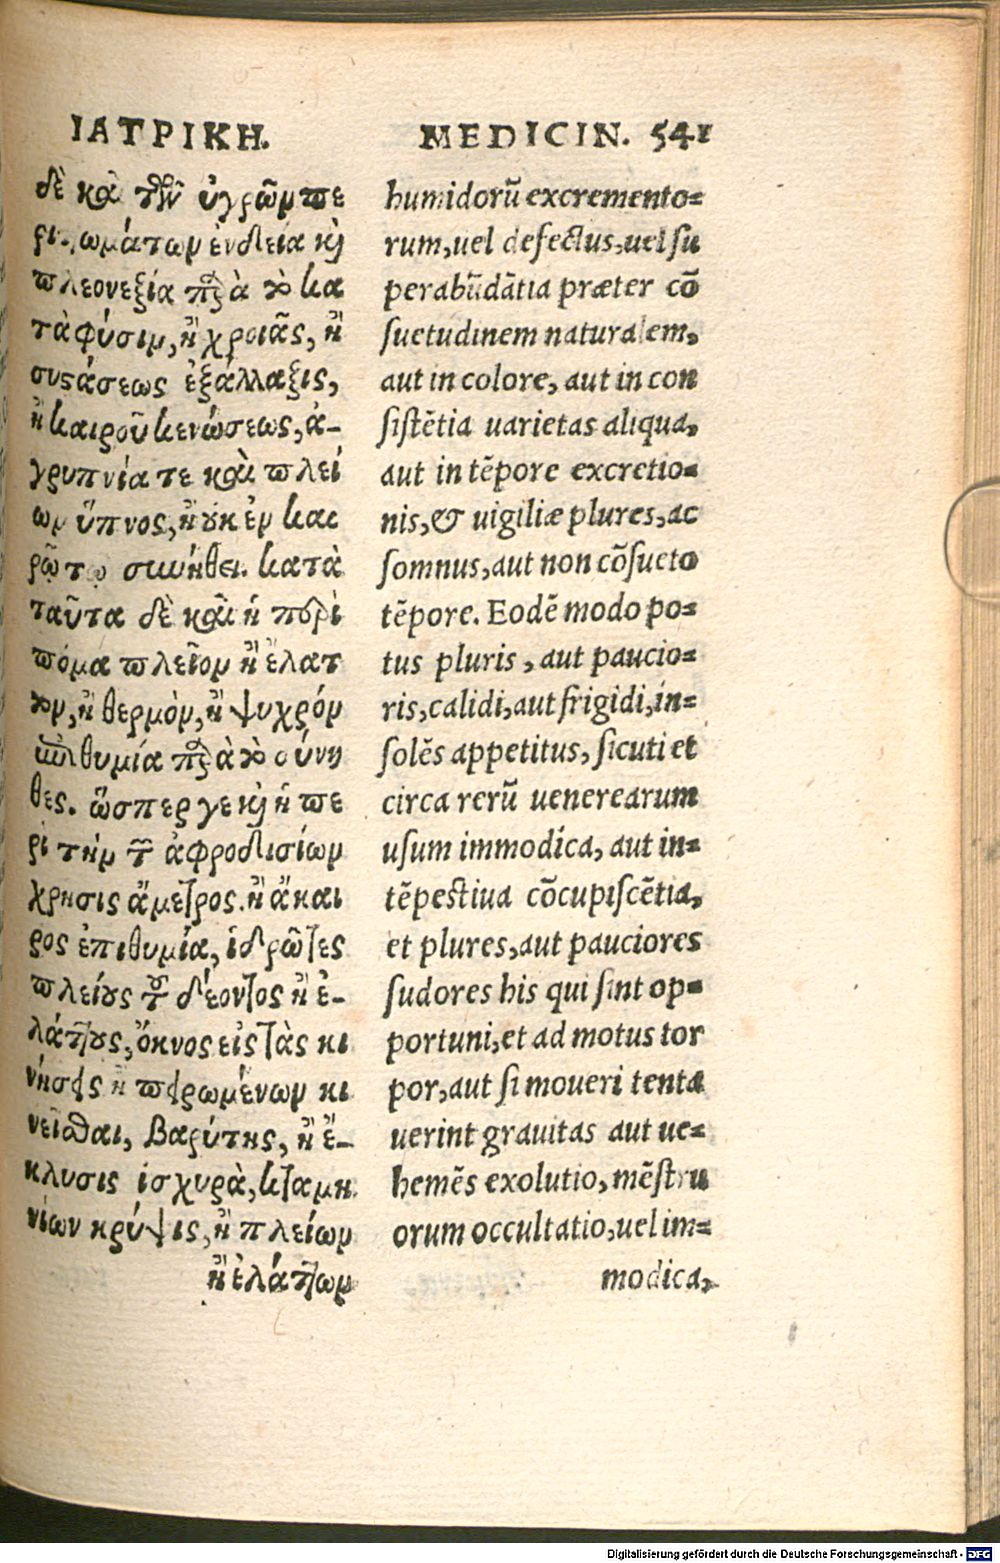 ΙΑΤΡΙΚΗ.
δὲ καὶ τῶν ὑγρῶν πε
ριτ͂ωμάτων ἐνδεία κὶ
πλεονεξία παρὰ τὸ κα
τὰ φύσιν, ἢ χροιᾶς, ἢ
συστάσεως ἐξάλλαξις,
ἢ καιροῦ κενώσεως, ἀ-
γρυπνία τε καὶ πλεί
ων ὕπνος, ἢ οὐκ ἐν και
ρῷ τῳ συνήθει. κατὰ
ταῦτα δὲ καὶ ἡ περὶ
πόμα πλεῖον ἢ ἔλατ
τον, ἢ θερμὸν, ἢ ψυχρόν
ἐπιθυμία παρὰ τὸ σύνη
θες. ὥσπερ γε κὶ ἡ πε
ρὶ τὴν τῶν ἀφροδισίων
χρῆσις ἄμετρος. ἢ ἄκαι
ρος ἐπιθυμία, ἱδρῶτες
πλείους τοῦ δέοντος ἢ ἐ-
λάττους, ὄκνος εἰς τὰς κι
νήσεις ἢ πειρωμένων κι
νεῖσθαι, βαρύτης, ἢ ἔ-
κλυσις ἰσχυρὰ, καταμη
νίων κρύψις, ἢ πλείων
ἢ ἐλάττων
MEDICIN. 541
humidorũ excremento=
rum, uel defectus, uel su
perabũdãtia præter cõ
suetudinem naturalem,
aut in colore, aut in con
sistẽtia uarietas aliqua,
aut in tẽpore excretio=
nis, & uigiliæ plures, ac
somnus, aut non cõsueto
tẽpore. Eodẽ modo po=
tus pluris, aut paucio=
ris, calidi, aut frigidi, in=
solẽs appetitus, sicuti et
circa rerũ uenerearum
usum immodica, aut in=
tẽpestiua cõcupiscẽtia,
et plures, aut pauciores
sudores his qui sint op=
portuni, et ad motus tor
por, aut si moueri tenta
uerint grauitas aut ue=
hemẽs exolutio, mẽstru
orum occultatio, uel im=
modica,
Digitalisierung gefördert durch die Deutsche Forschungsgemeinschaft - DFG